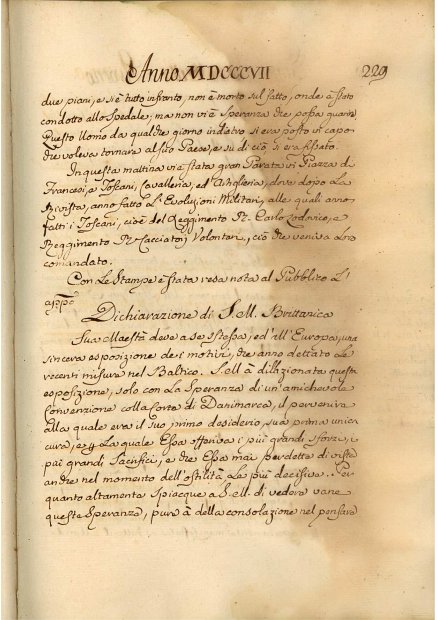 Anno MDCCCVII 229
due piani, e si è tutto infranto, non è morto sul fatto, onde è stato
condotto allo Spedale, ma non vi è Speranza che possa guarire
Questo Uomo da qualche giorno indietro si era posto in capo
che voleva tornare al suo Paese, e su di ciò si era fissato.
In questa mattina vi è stata gran Parata in Piazza di
Francesi, e Toscani, Cavalleria, ed Artiglieria, dove dopo La
Rivista, anno fatto L'Evoluzioni Militari, alle quali anno
fatti i Toscani, cioè del Reggimento Rl. Carlo Lodovico, e
Reggimento Rl. Cacciatori Volontari, ciò che veniva Loro
comandato.
Con Le Stampe è stata resa nota al Pubblico L'
appo.
Dichiarazione di S. M. Brittanica
Sua Maestà deve a se stessa, ed all'Europa, una
sincera esposizione dei motivi, che anno dettato Le
recenti misure nel Baltico. S. M. à dilazionata questa
esposizione, solo con La Speranza di un'amichevole
Convenzione colla Corte di Danimarca, il pervenire
alla quale era il suo primo desiderio, sua prima unica
cura, e La quale Essa offeriva i più grandi sforzi, i
più grandi Sacrifici, e che Essa mai perdette di vista
anche nel momento dell'ostilità La più decisiva. Per
quanto altamente spiacque a S. M. di vedere vane
queste Speranze, pure à della consolazione nel pensare